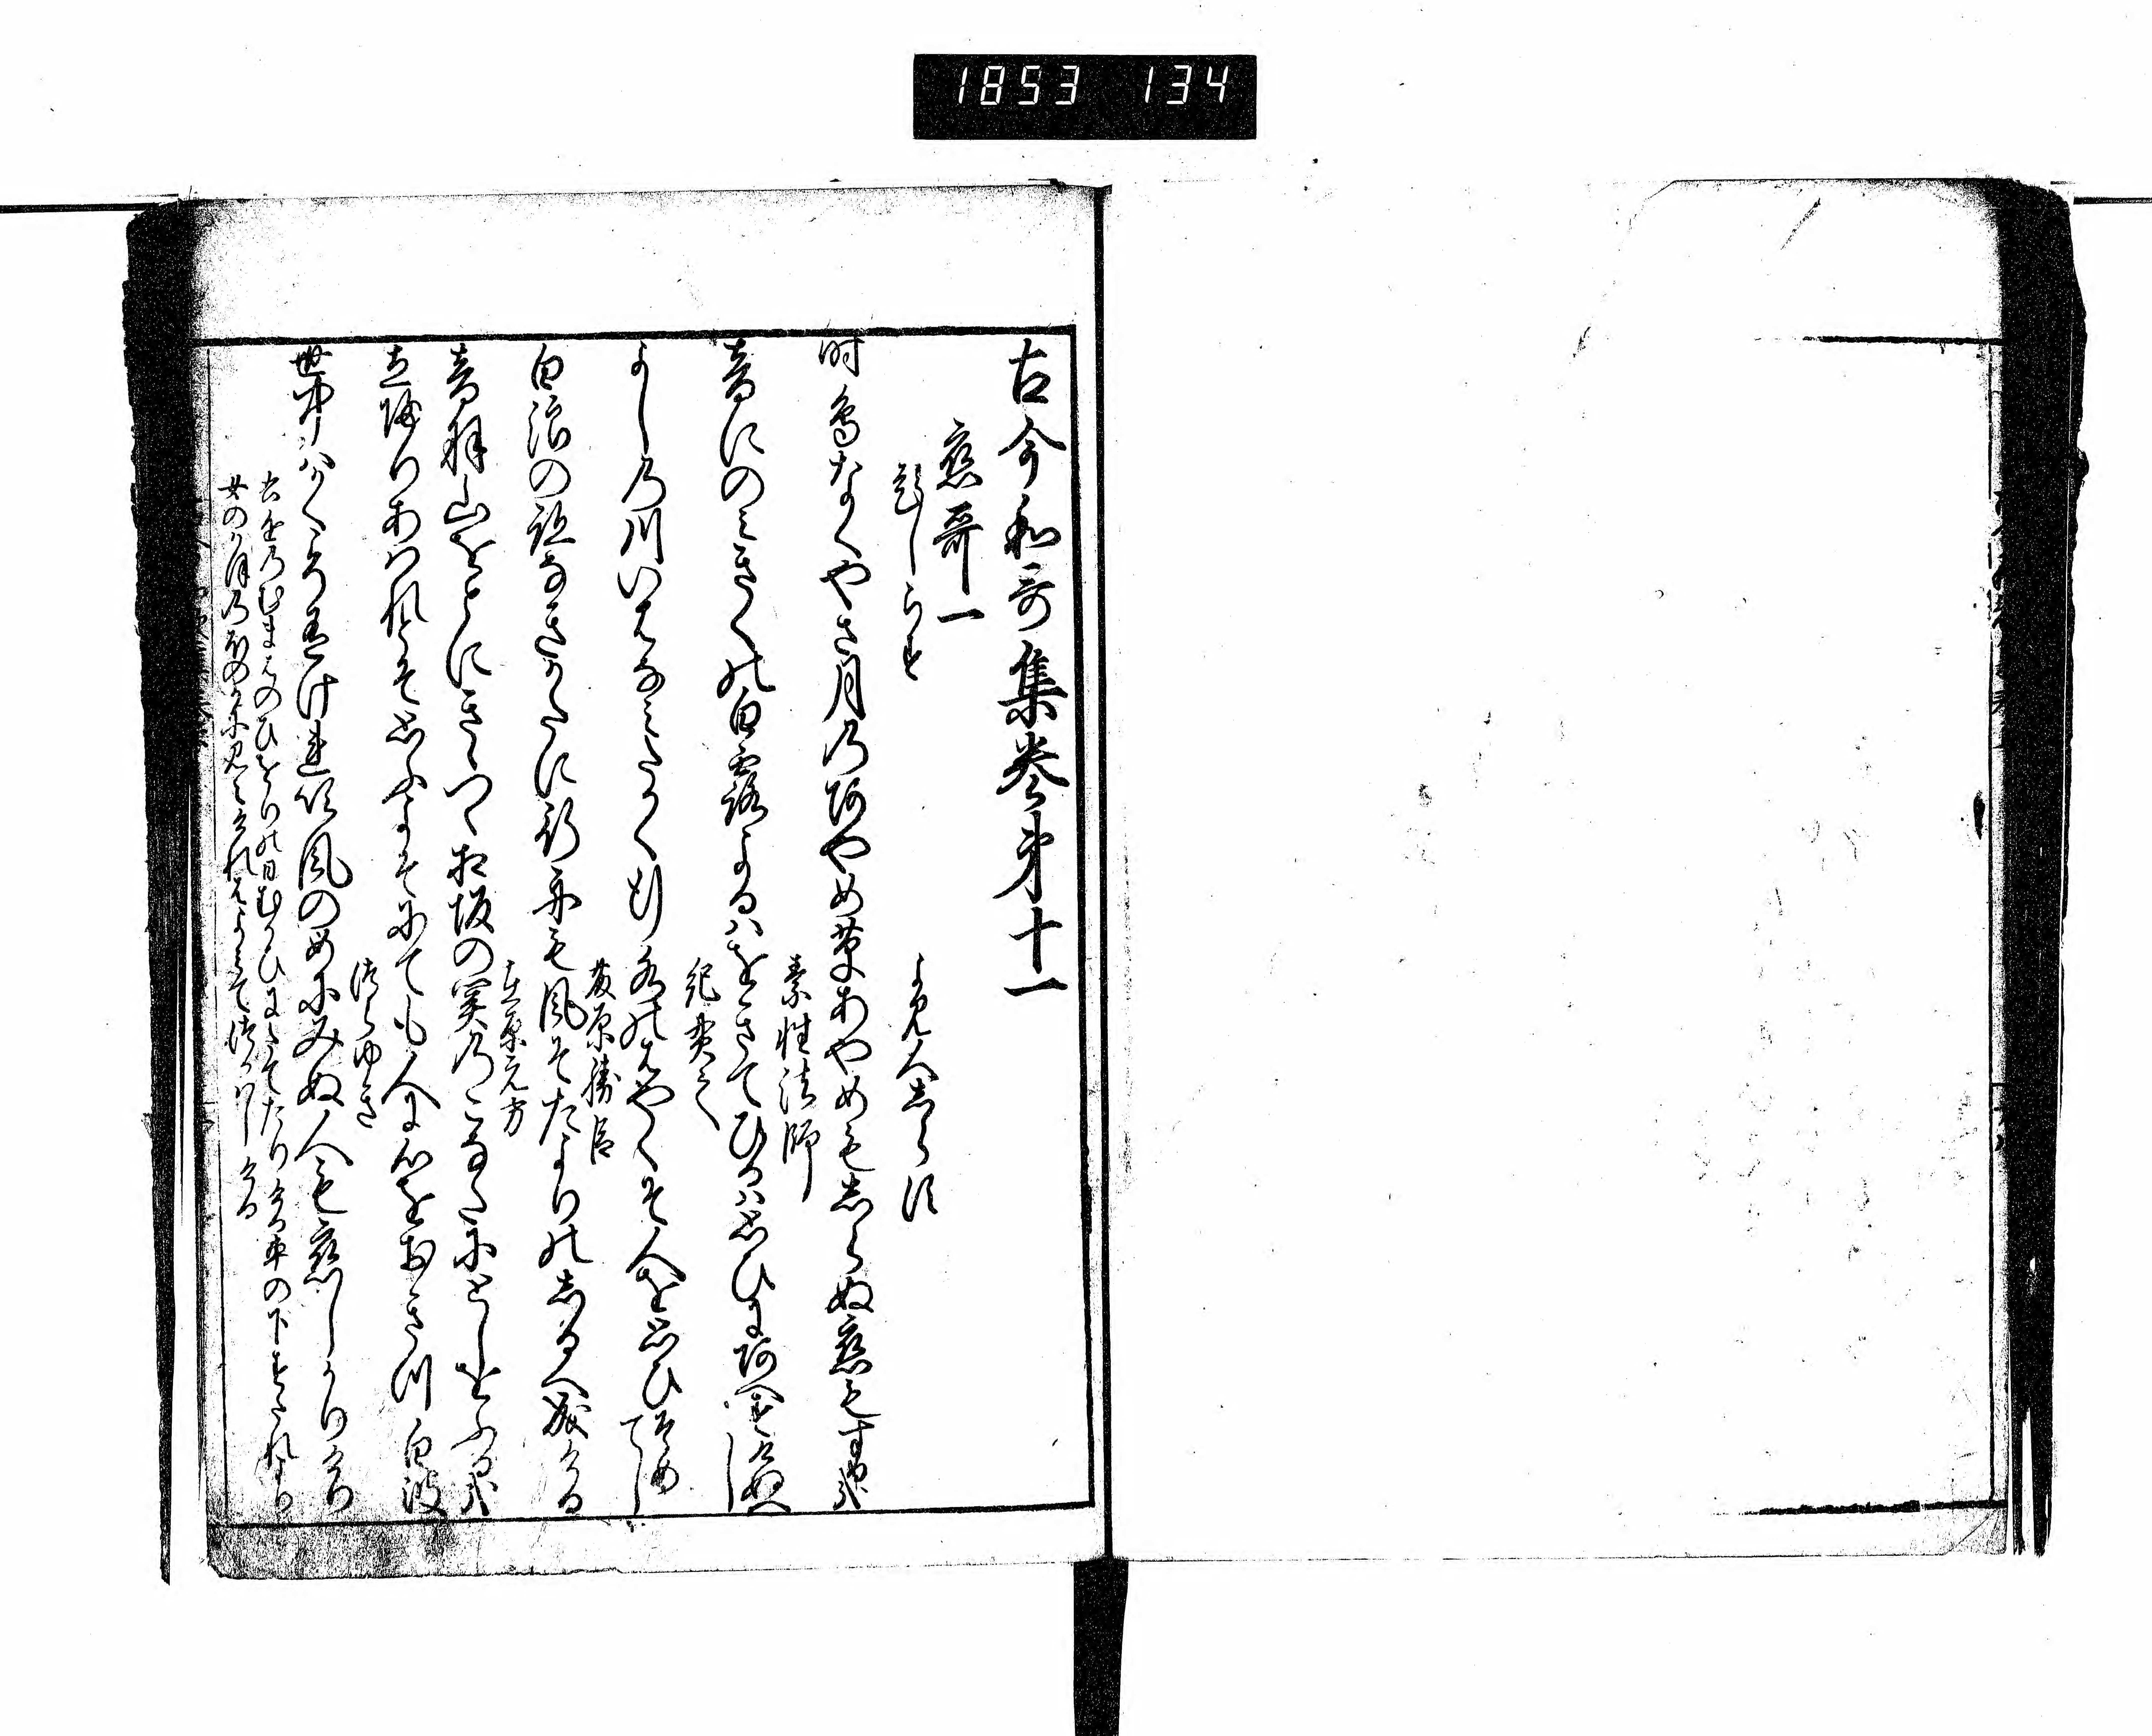 1853 134
古今和哥集巻第十一
恋哥一
題しらす
よみ人しらす
時鳥なくやさ月乃あやめ草あやめもしらぬ恋もするかな
素性法師
音にのみきくの白露よるはをきてひるは思ひにあへすけぬへし
紀貫之
よし乃川いはなみたかく行水のはやくそ人を思ひそめてし
藤原勝臣
白浪の跡なきかたに行舟も風そたよりのしるへ成ける
在原元方
音羽山をとにきゝつゝ相坂の関乃こなたにとしをふるかな
立帰りあはれとそ思ふよそにても人に心をおきつ白波
つらゆき
世中はかくこそ有けれ吹風のめにみぬ人も恋しかりけり
右近乃むまはのひをりの日むかひにたてたりける車の下すたれより
女のかほ乃ほのかに見えけれはよみてつかはしける